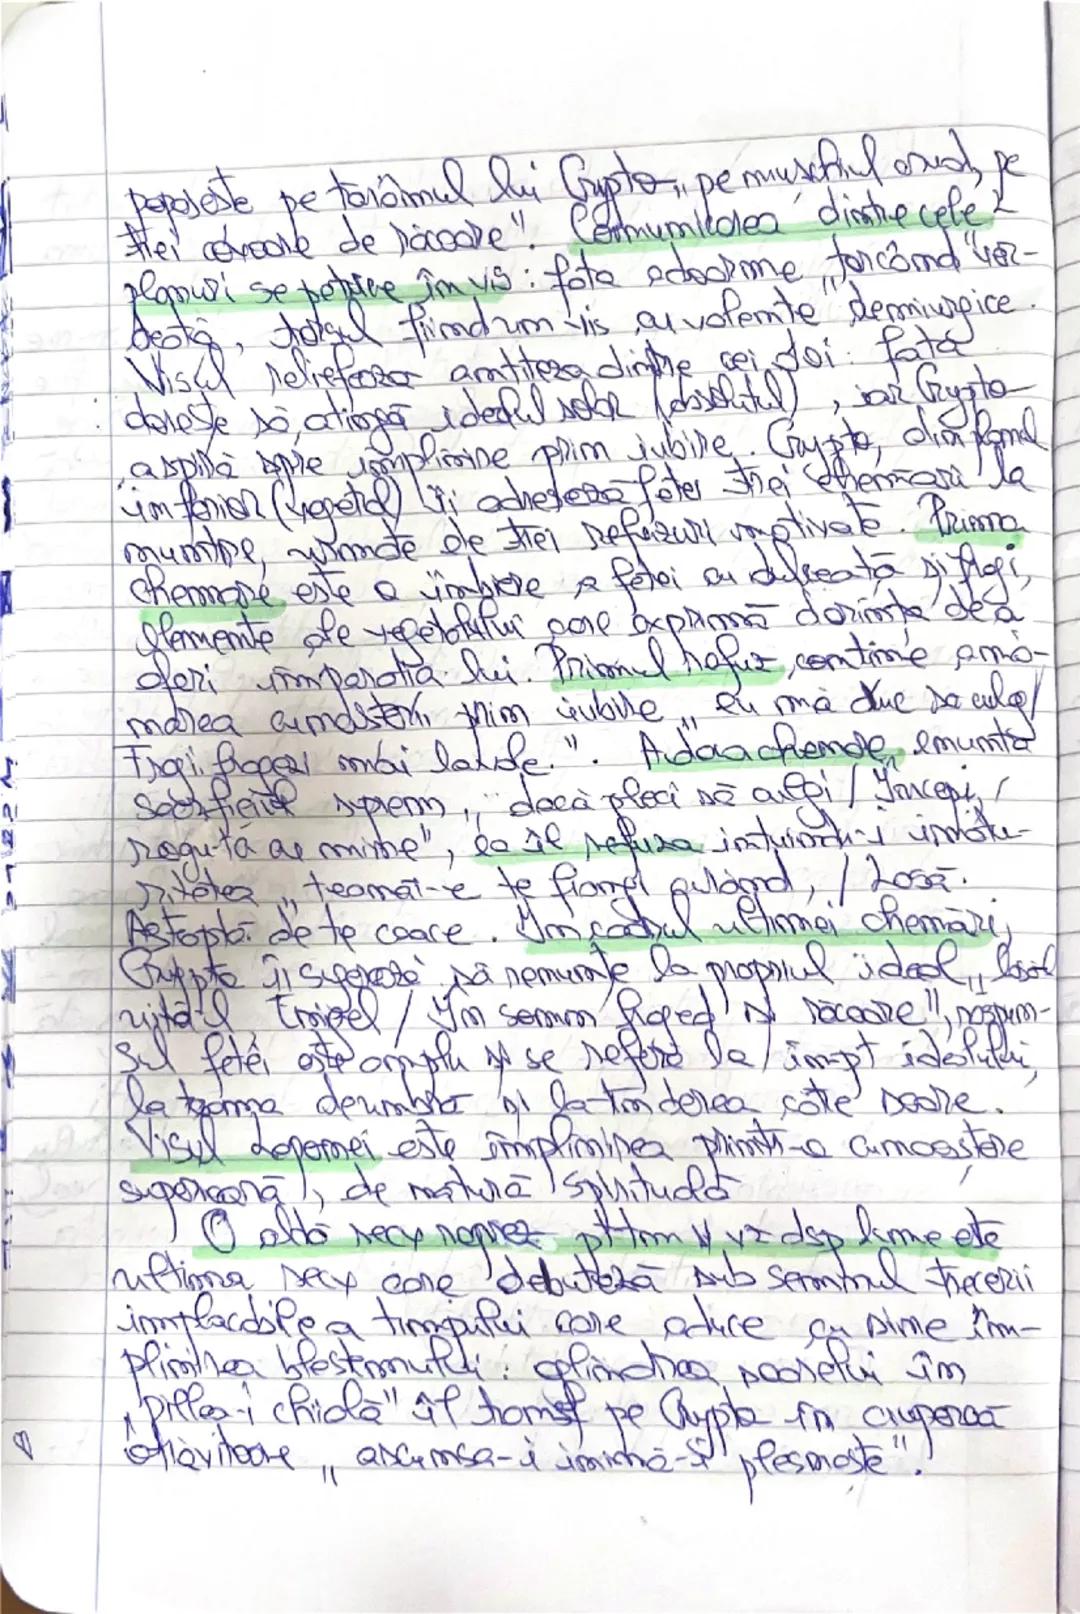 poposește pe tărâmul lui Crypto, „pe mușchiul crud, pe
trei covoare de răcoare". Comunicarea dintre cele 2
planuri se petrece în vis: fata adoarme „torcând" ver-
deață, torsul fiind un vis cu valențe demiurgice.
Visul reliefează antiteza dintre cei doi: fata
dorește să atingă idealul solar (absolutul), iar Crypto
aspiră spre împlinire prin iubire. Crypto, din planul
inferior (vegetal) îi adresează fetei trei chemări la
nuntire, urmate de trei refuzuri motivate. Prima
chemare este o îmbiere a fetei cu dulceață și fragi,
elemente ale vegetalului care exprimă dorința de a
oferi împărăția lui. Primul refuz conține amâ-
narea cunoașterii prin iubire „eu mă duc să culeg/
Fragii fragezi mai la vale.". A doua chemare enunță
sacrificiul suprem, „dacă pleci să culegi / Începi, /
rogu-te cu mine", ea îl refuză intuindu-i imatu-
ritatea „teamă-e te frangi curând, / Lasă.
Așteaptă de te coace. În cadrul ultimei chemări,
Crypto îi sugerează să renunțe la propriul ideal „lasă-l
uită-l Enigel / În somn fraged și răcoare", răspun-
sul fetei este amplu și se referă la împt idealului,
la teama de umbră și la tinderea către soare.
Visul Laponei este împlinirea printr-o cunoaștere
superioară, de natură spirituală
O altă secv reprez pt tem și vz dsp lume ete
ultima secv care debutează sub semnul trecerii
implacabile a timpului care aduce cu sine îm-
plinirea blestemului: oglindirea soarelui în
„pielea-i chială" îl transf pe Crypto în ciupercă
otrăvitoare „ascunsa-i inimă-i plesnește".